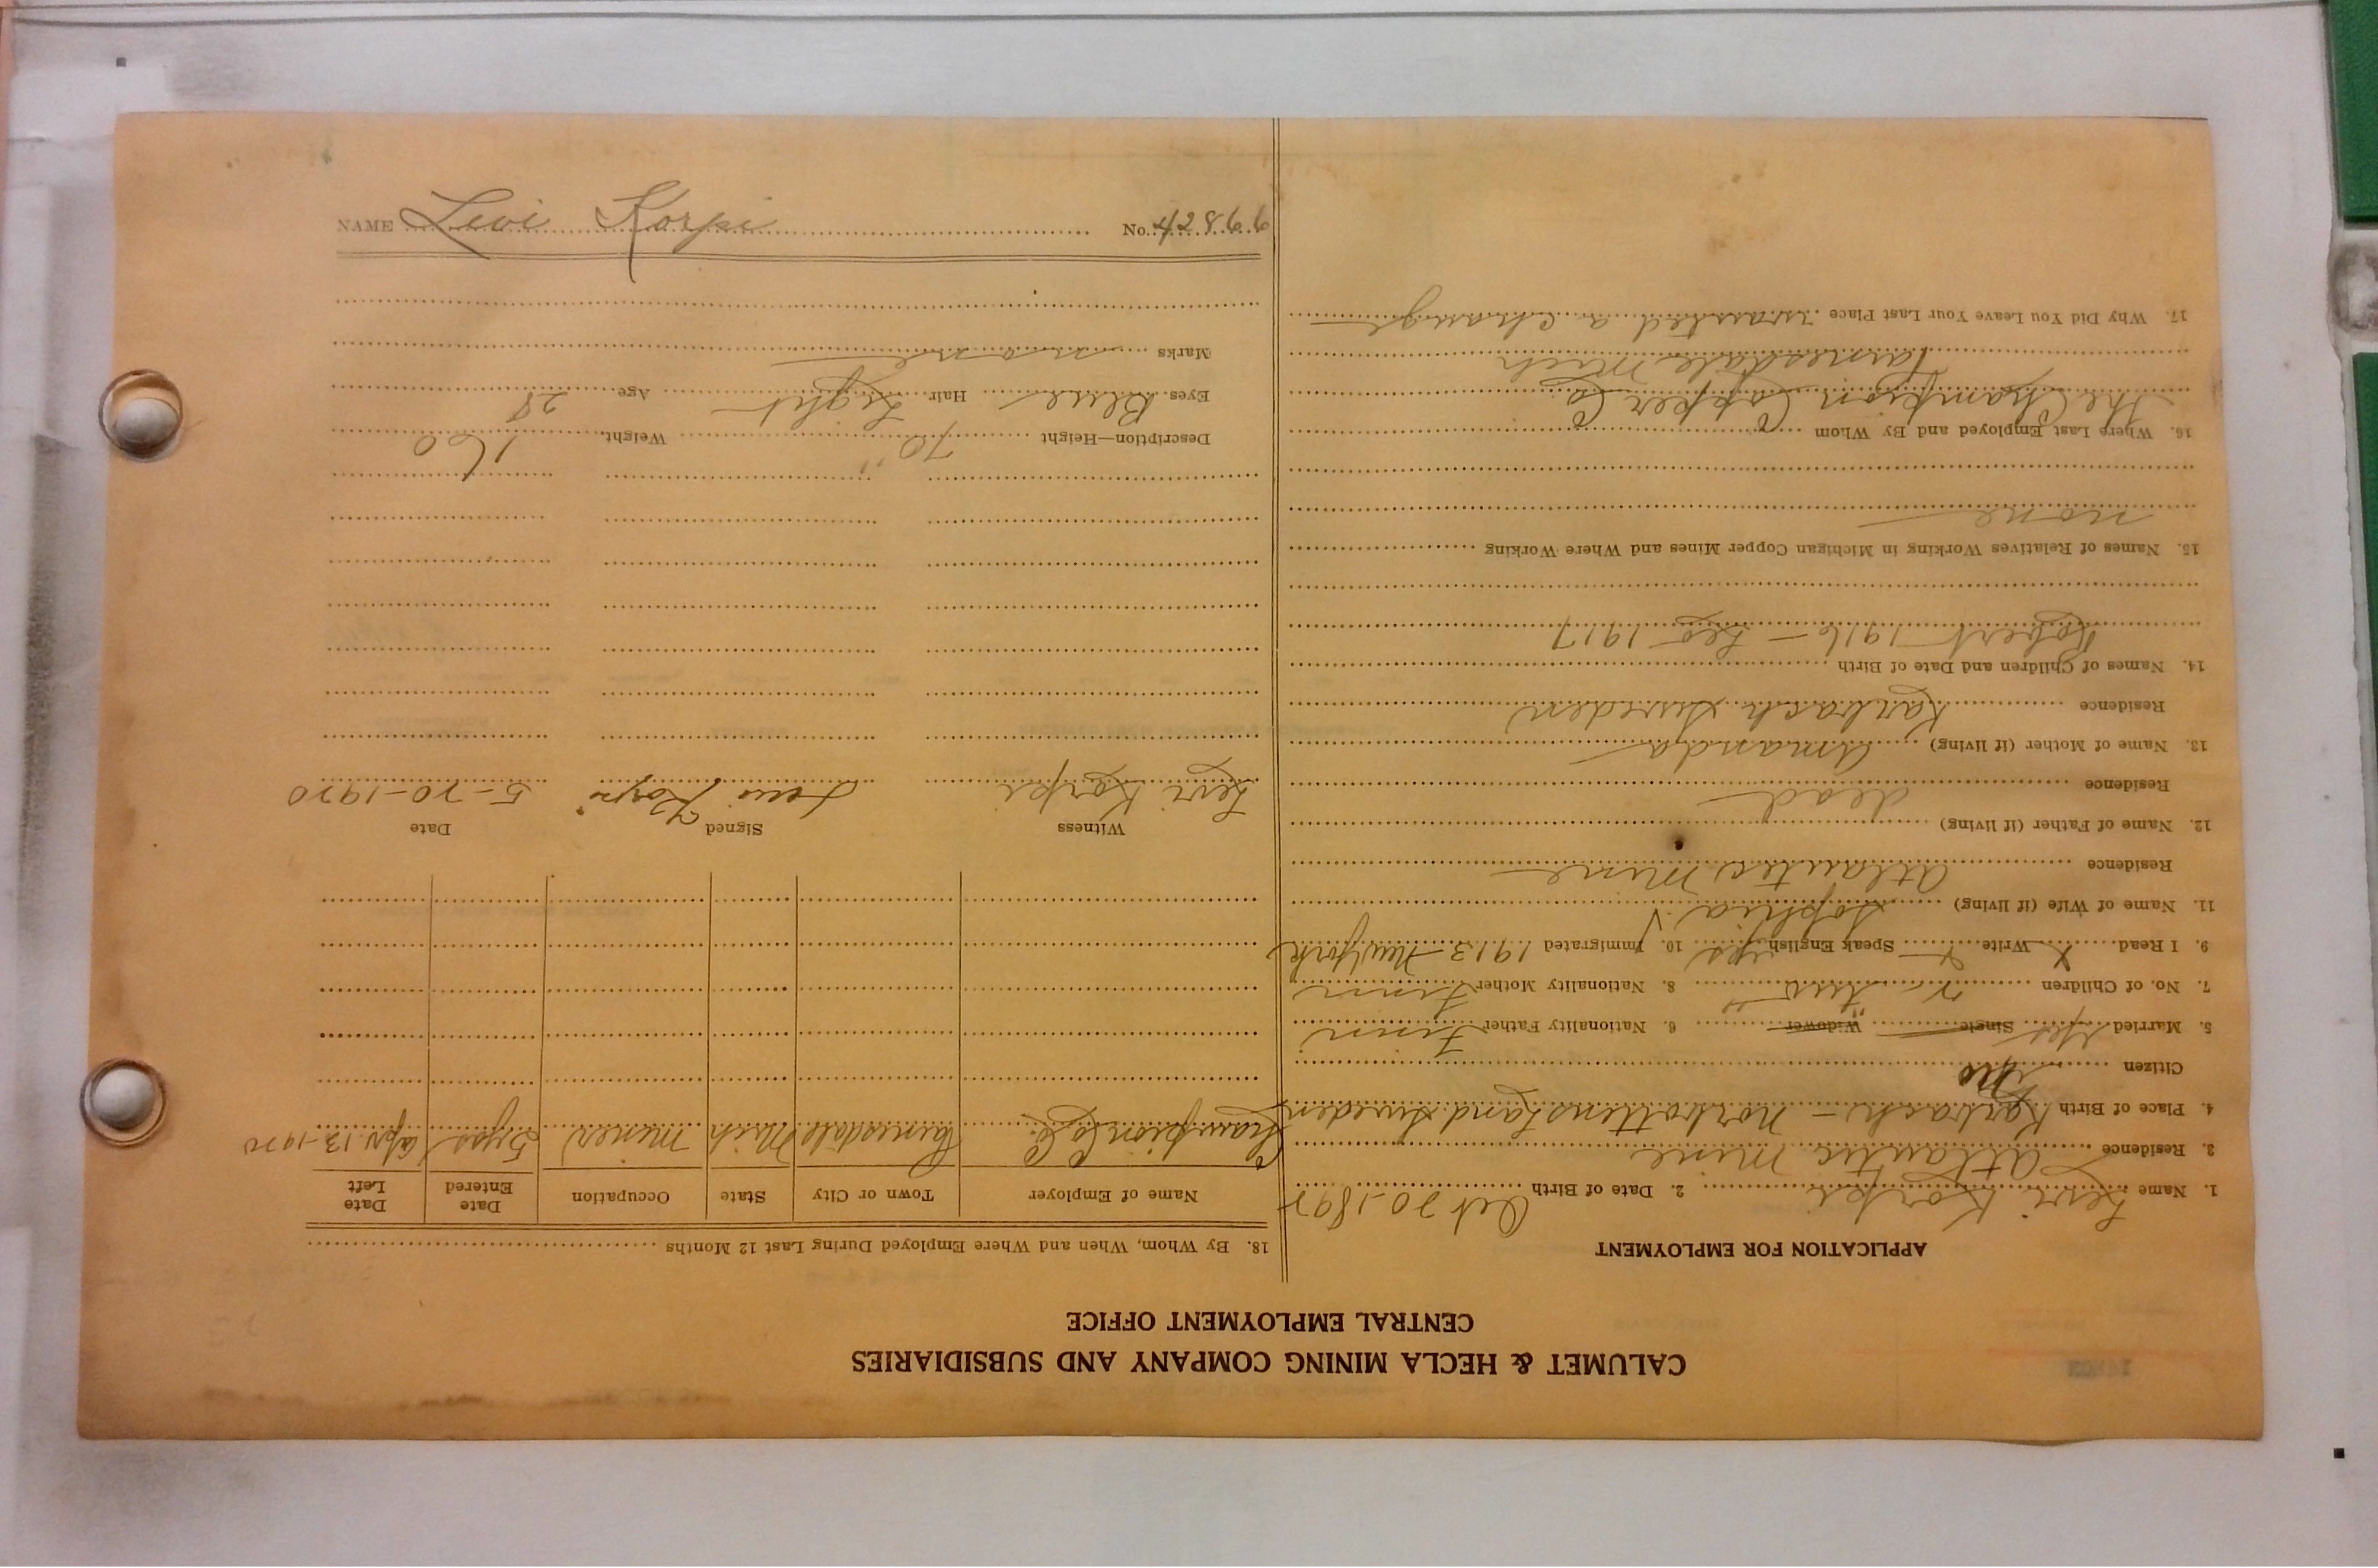 CALUMET & HECLA MINING COMPANY AND SUBSIDIARIES
CENTRAL EMPLOYMENT OFFICE
APPLICATION FOR EMPLOYMENT
1. Name Levi Korpi 2. Date of Birth Oct 20-1892
3. Residence Atlantic Mine
4. Place of Birth Sweden
Citizen no
5. Married Yes Single Widower 6. Nationality Father Finn
7. No. of Children 2 two 8. Nationality Mother Finn
9. I Read X Write X Speak English yes 10. Immigrated 1913-New York
11. Name of Wife (if living) Sophia
Residence Atlantic Mine
12. Name of Father (if living) dead
Residence
13. Name of Mother (if living) Amanda
Residence Sweden
14. Names of Children and Date of Birth
Robert 1916 - Leo 1917
15. Names of Relatives Working in Michigan Copper Mines and Where Working
none
16. Where Last Employed and By Whom
The Champion Copper Co.
Painesdale Mich
17. Why Did You Leave Your Last Place wanted a change
18. By Whom, When and Where Employed During Last 12 Months
Name of Employer Town or City State Occupation Date Entered Date Left
Champion C. Co. Painesdale Mich miner 5 yrs Apr. 13-1920
Witness Signed Date
Levi Korpi Levi Korpi 5-20-1920
Description—Height 70" Weight 160
Eyes Blue Hair Light Age 28
Marks none
NAME Levi Korpi No. 42866